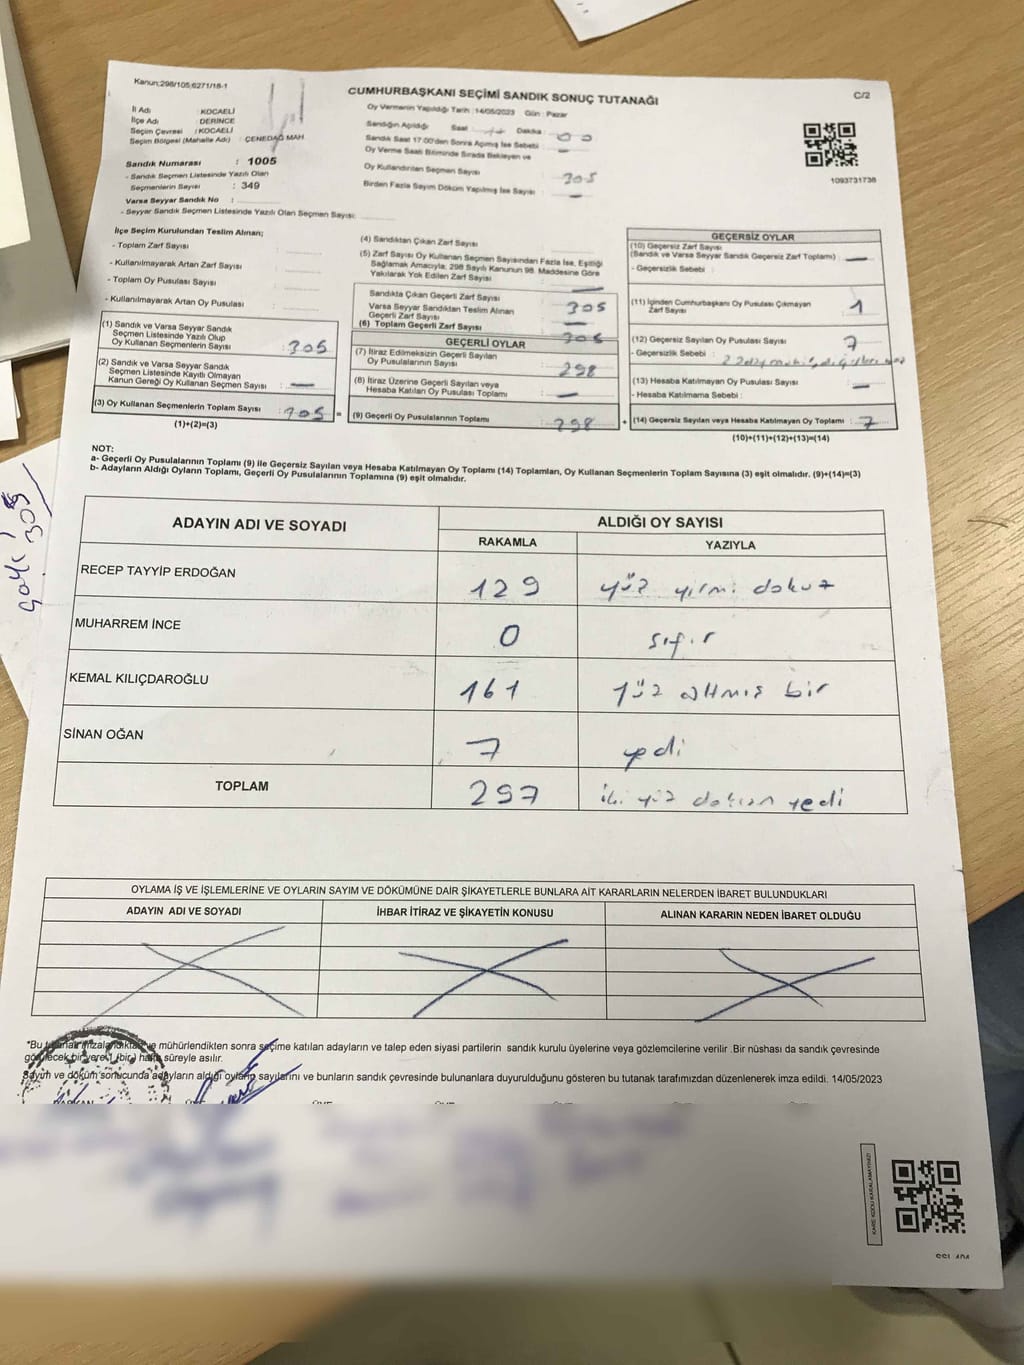 Kanun:298/105;6271/18-1
CUMHURBAŞKANI SEÇİMİ SANDIK SONUÇ TUTANAĞI
C/2
Oy Vermenin Yapıldığı Tarih :14/05/2023 Gün : Pazar
İl Adı : KOCAELİ
İlçe Adı : DERİNCE
Seçim Çevresi : KOCAELİ
Seçim Bölgesi (Mahalle Adı) : ÇENEDAĞ MAH.
Sandık Numarası : 1005
- Sandık Seçmen Listesinde Yazılı Olan
Seçmenlerin Sayısı : 349
Varsa Seyyar Sandık No :
- Seyyar Sandık Seçmen Listesinde Yazılı Olan Seçmen Sayısı:
Sandığın Açıldığı Saat : Dakika : 00
Sandık Saat 17:00'den Sonra Açılmış İse Sebebi : —
Oy Verme Saati Bitiminde Sırada Bekleyen ve
Oy Kullandırılan Seçmen Sayısı : 305
Birden Fazla Sayım Döküm Yapılmış İse Sayısı : —
1093731736
İlçe Seçim Kurulundan Teslim Alınan;
- Toplam Zarf Sayısı :
- Kullanılmayarak Artan Zarf Sayısı :
- Toplam Oy Pusulası Sayısı :
- Kullanılmayarak Artan Oy Pusulası :
(1) Sandık ve Varsa Seyyar Sandık
Seçmen Listesinde Yazılı Olup
Oy Kullanan Seçmenlerin Sayısı : 305
(2) Sandık ve Varsa Seyyar Sandık
Seçmen Listesinde Kayıtlı Olmayan
Kanun Gereği Oy Kullanan Seçmen Sayısı : —
(3) Oy Kullanan Seçmenlerin Toplam Sayısı : 305 =
(1)+(2)=(3)
(4) Sandıktan Çıkan Zarf Sayısı :
(5) Zarf Sayısı Oy Kullanan Seçmen Sayısından Fazla İse, Eşitliği
Sağlamak Amacıyla; 298 Sayılı Kanunun 98. Maddesine Göre
Yakılarak Yok Edilen Zarf Sayısı : —
Sandıkta Çıkan Geçerli Zarf Sayısı : 305
Varsa Seyyar Sandıktan Teslim Alınan
Geçerli Zarf Sayısı : —
(6) Toplam Geçerli Zarf Sayısı : 305
GEÇERLİ OYLAR
(7) İtiraz Edilmeksizin Geçerli Sayılan
Oy Pusulalarının Sayısı : 298
(8) İtiraz Üzerine Geçerli Sayılan veya
Hesaba Katılan Oy Pusulası Toplamı : —
(9) Geçerli Oy Pusulalarının Toplamı : 298 +
GEÇERSİZ OYLAR
(10) Geçersiz Zarf Sayısı
(Sandık ve Varsa Seyyar Sandık Geçersiz Zarf Toplamı) : —
- Geçersizlik Sebebi :
(11) İçinden Cumhurbaşkanı Oy Pusulası Çıkmayan
Zarf Sayısı : 1
(12) Geçersiz Sayılan Oy Pusulası Sayısı : 7
- Geçersizlik Sebebi :
(13) Hesaba Katılmayan Oy Pusulası Sayısı : —
- Hesaba Katılmama Sebebi :
(14) Geçersiz Sayılan veya Hesaba Katılmayan Oy Toplamı : 7
(10)+(11)+(12)+(13)=(14)
NOT:
a- Geçerli Oy Pusulalarının Toplamı (9) ile Geçersiz Sayılan veya Hesaba Katılmayan Oy Toplamı (14) Toplamları, Oy Kullanan Seçmenlerin Toplam Sayısına (3) eşit olmalıdır. (9)+(14)=(3)
b- Adayların Aldığı Oyların Toplamı, Geçerli Oy Pusulalarının Toplamına (9) eşit olmalıdır.
305
ADAYIN ADI VE SOYADI
ALDIĞI OY SAYISI
RAKAMLA
YAZIYLA
RECEP TAYYİP ERDOĞAN 129 yüz yirmi dokuz
MUHARREM İNCE 0 sıfır
KEMAL KILIÇDAROĞLU 161 yüz altmış bir
SİNAN OĞAN 7 yedi
TOPLAM 297 iki yüz doksan yedi
OYLAMA İŞ VE İŞLEMLERİNE VE OYLARIN SAYIM VE DÖKÜMÜNE DAİR ŞİKAYETLERLE BUNLARA AİT KARARLARIN NELERDEN İBARET BULUNDUKLARI
ADAYIN ADI VE SOYADI
İHBAR İTİRAZ VE ŞİKAYETİN KONUSU
ALINAN KARARIN NEDEN İBARET OLDUĞU
"Bu tutanak imzalandıktan ve mühürlendikten sonra seçime katılan adayların ve talep eden siyasi partilerin sandık kurulu üyelerine veya gözlemcilerine verilir .Bir nüshası da sandık çevresinde
görülecek bir yere 1 (bir) hafta süreyle asılır.
Sayım ve döküm sonucunda adayların aldığı oyların sayılarını ve bunların sandık çevresinde bulunanlara duyurulduğunu gösteren bu tutanak tarafımızdan düzenlenerek imza edildi. 14/05/2023
KARE KODU KARALAMAYINIZ!